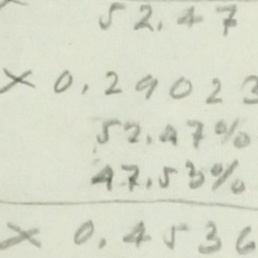 52.47
× 0.29023
52.47%
47.53%
× 0.4536